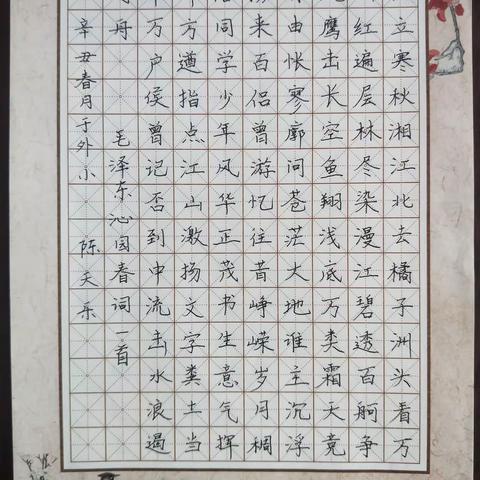 立寒秋湘江北去橘子洲头看万
红遍层林尽染漫江碧透百舸争
鹰击长空鱼翔浅底万类霜天竞
由怅寥廓问苍茫大地谁主沉浮
来百侣曾游忆往昔峥嵘岁月稠
同学少年风华正茂书生意气挥
方遒指点江山激扬文字粪土当
万户侯曾记否到中流击水浪遏
舟
毛泽东沁园春词一首
辛丑春月于外小 陈天乐